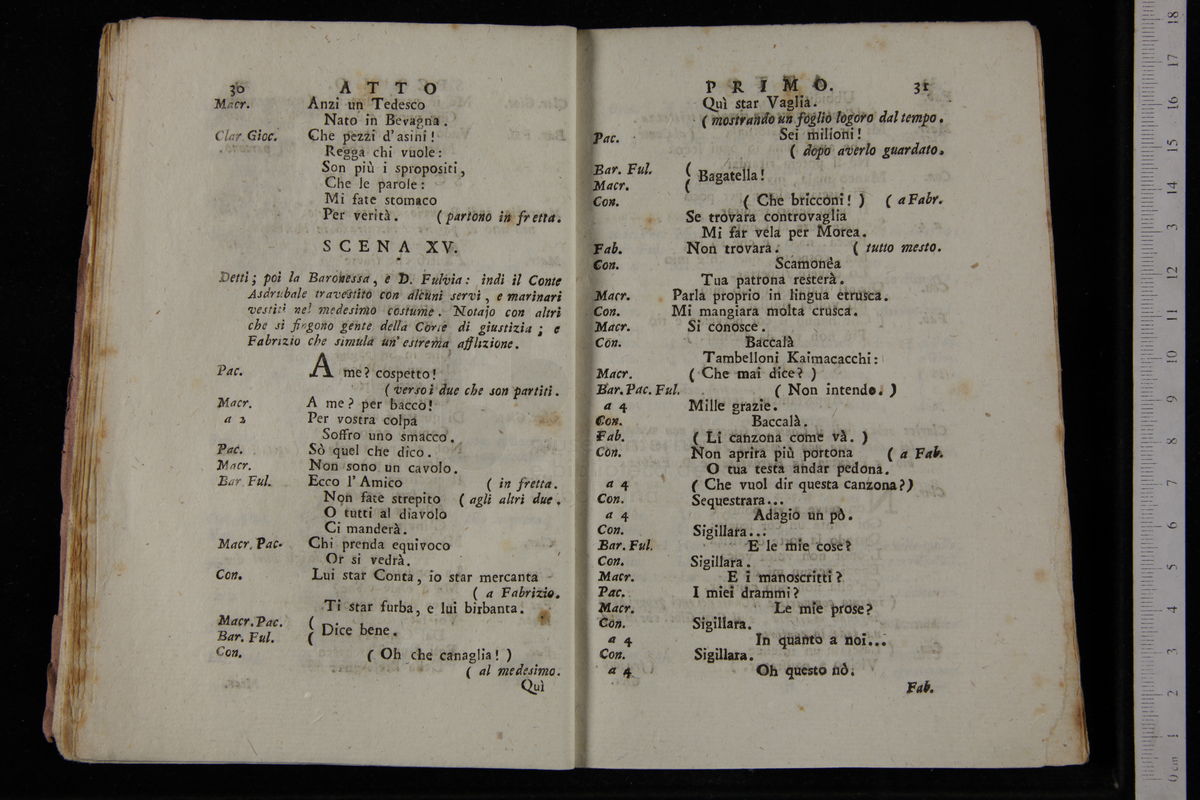 30 ATTO
Macr. Anzi un Tedesco
Nato in Bevagna.
Clar. Gioc. Che pezzi d'asini!
Regga chi vuole:
Son più i spropositi,
Che le parole:
Mi fate stomaco
Per verità. (partono in fretta.
SCENA XV.
Detti; poi la Baronessa, e D. Fulvia: indi il Conte
Asdrubale travestito con alcuni servi, e marinari
vestiti nel medesimo costume. Notajo con altri
che si fingono gente della Corte di giustizia; e
Fabrizio che simula un' estrema afflizione.
Pac. A me? cospetto!
(verso i due che son partiti.
Macr. A me? per bacco!
a 2 Per vostra colpa
Soffro uno smacco.
Pac. Sò quel che dico.
Macr. Non sono un cavolo.
Bar. Ful. Ecco l'Amico (in fretta.
Non fate strepito (agli altri due.
O tutti al diavolo
Ci manderà.
Macr. Pac. Chi prenda equivoco
Or si vedrà.
Con. Lui star Conta, io star mercanta
(a Fabrizio.
Ti star furba, e lui birbanta.
Macr. Pac. (
Bar. Ful. ( Dice bene.
Con. (Oh che canaglia!)
(al medesimo.
Quì
PRIMO. 31
Quì star Vaglia.
(mostrando un foglio logoro dal tempo.
Pac. Sei milioni!
(dopo averlo guardato.
Bar. Ful. ( Bagatella!
Macr. (
Con. (Che bricconi!) (a Fabr.
Se trovara controvaglia
Mi far vela per Morea.
Fab. Non trovara. (tutto mesto.
Con. Scamonèa
Tua patrona resterà.
Macr. Parla proprio in lingua etrusca.
Con. Mi mangiara molta crusca.
Macr. Si conosce.
Con. Baccalà
Tambelloni Kaimacacchi:
Macr. (Che mai dice?)
Bar. Pac. Ful. (Non intendo.)
a 4 Mille grazie.
Con. Baccalà.
Fab. (Li canzona come và.)
Con. Non aprira più portona (a Fab.
O tua testa andar pedona.
a 4 (Che vuol dir questa canzona?)
Con. Sequestrara...
a 4 Adagio un pò.
Con. Sigillara...
Bar. Ful. E le mie cose?
Con. Sigillara.
Macr. E i manoscritti?
Pac. I miei drammi?
Macr. Le mie prose?
Con. Sigillara.
a 4 In quanto a noi...
Con. Sigillara.
a 4 Oh questo nò.
Fab.